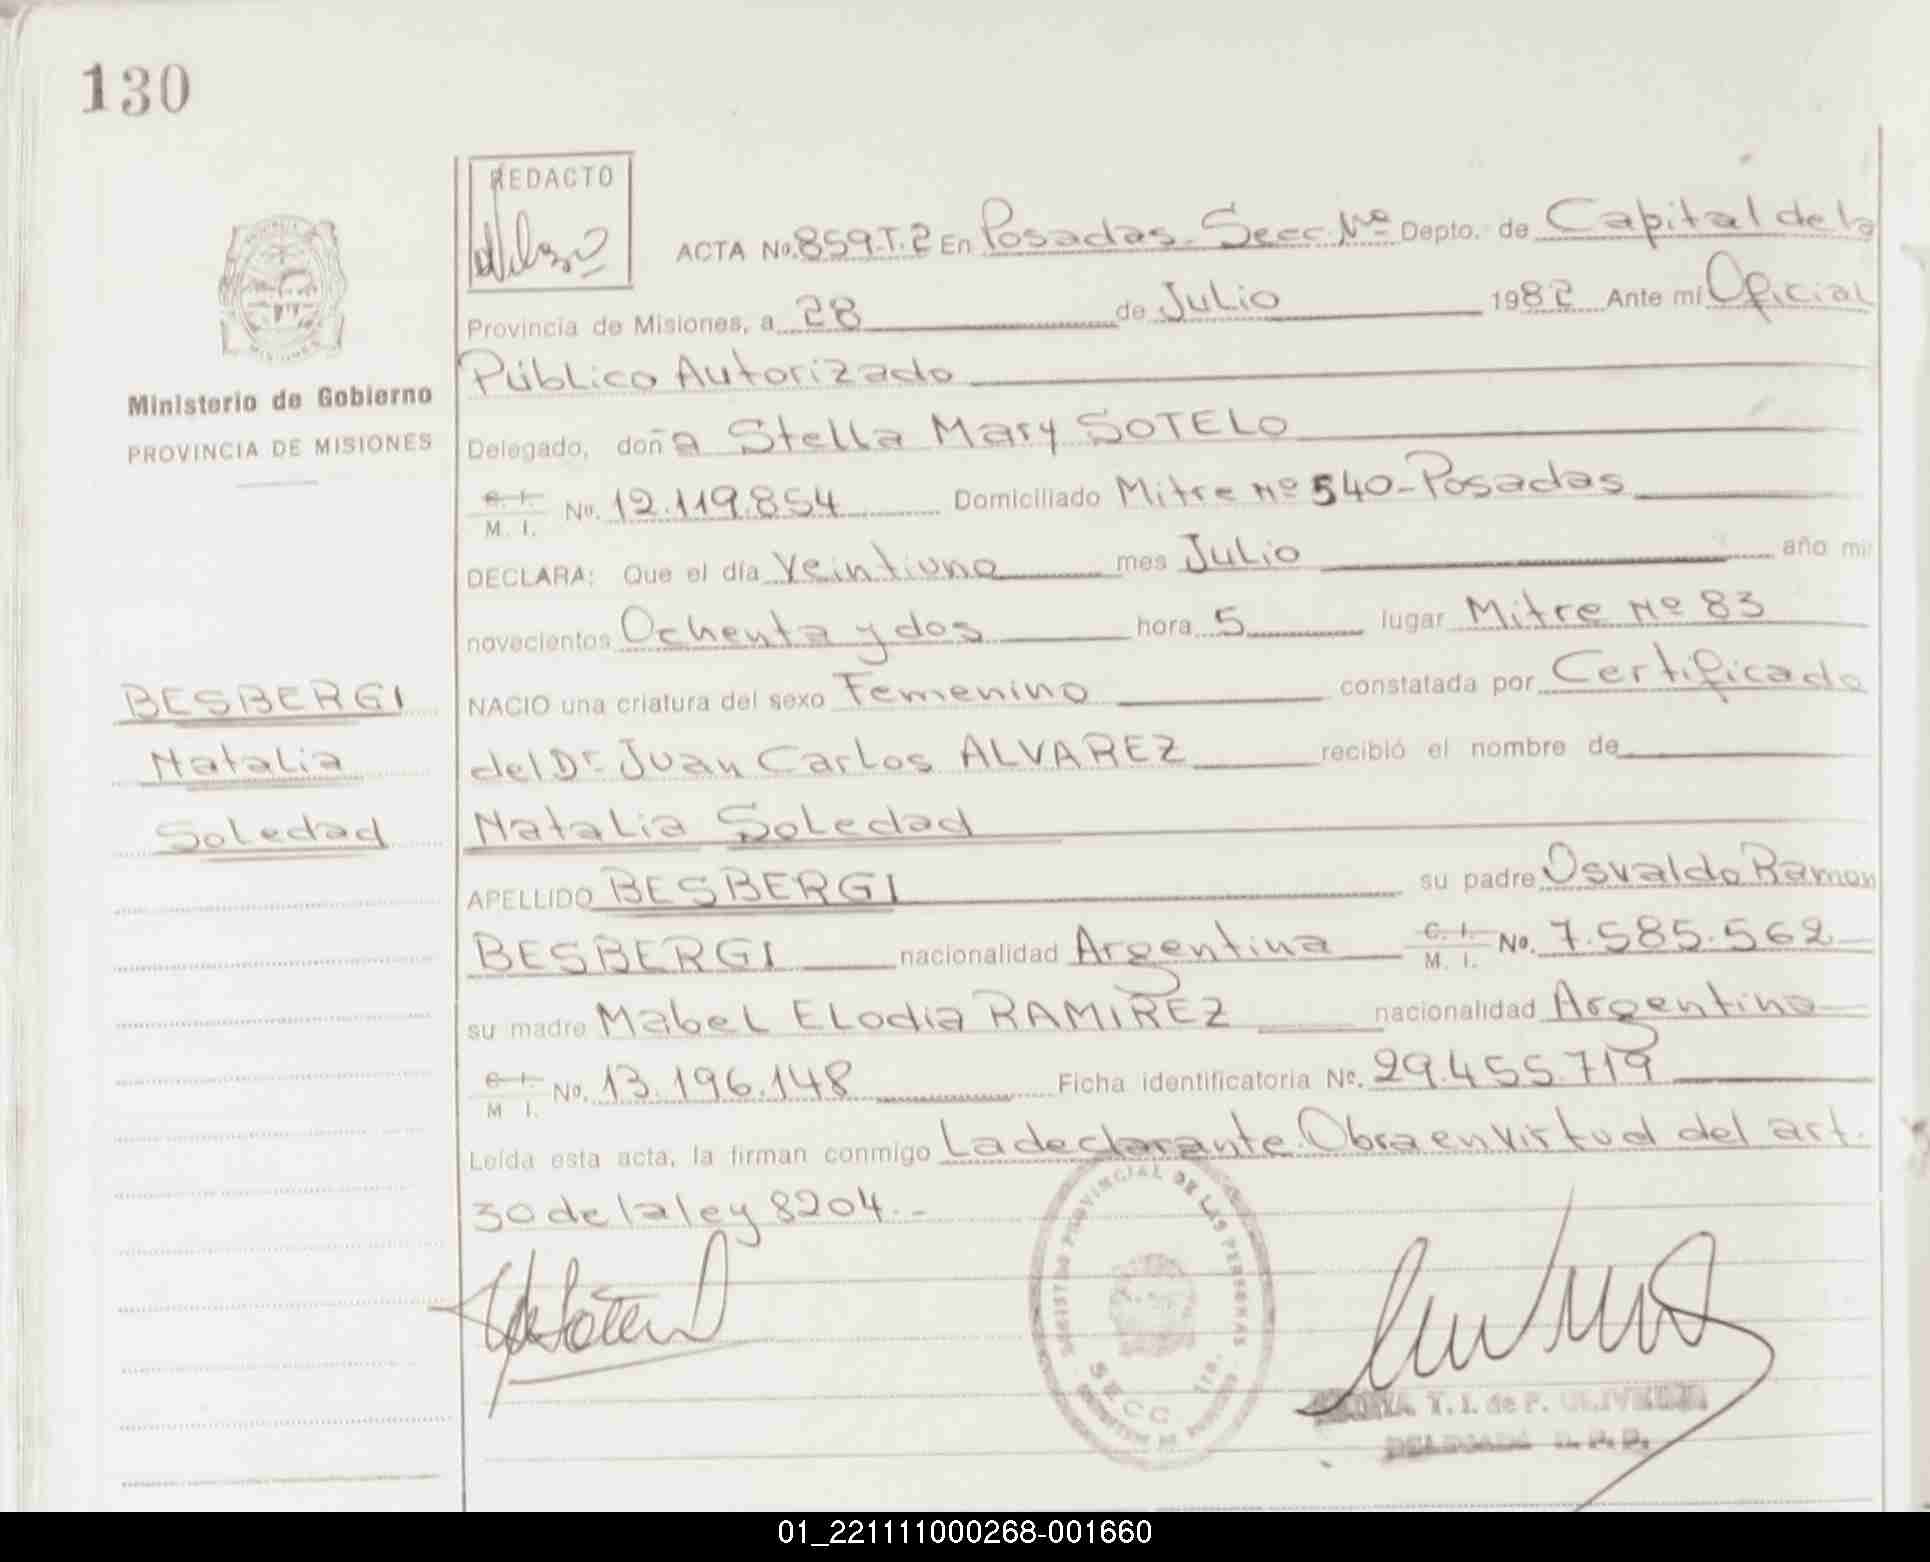 130
REDACTO
ACTA No. 859.T.2 En Posadas - Secc. Nº Depto. de Capital de la
Provincia de Misiones, a 28 de Julio 1982 Ante mi Oficial
Público Autorizado
Ministerio de Gobierno
PROVINCIA DE MISIONES
Delegado, doña Stella Mary SOTELO
C. I. M. I. No. 12.119.854 Domiciliado Mitre Nº 540 - Posadas
DECLARA: Que el día Veintiuno mes Julio año mil
novecientos Ochenta y dos hora 5 lugar Mitre Nº 83
BESBERGI
Natalia
Soledad
NACIO una criatura del sexo Femenino constatada por Certificado
del Dr Juan Carlos ALVAREZ recibió el nombre de
Natalia Soledad
APELLIDO BESBERGI su padre Osvaldo Ramon
BESBERGI nacionalidad Argentina C. I. M. I. No. 7.585.562
su madre Mabel Elodia RAMIREZ nacionalidad Argentina
C. I. M I. No. 13.196.148 Ficha identificatoria No. 29.455.719
Leída esta acta, la firman conmigo La declarante. Obra en virtud del art.
30 de la ley 8204.-
REGISTRO PROVINCIAL DE LAS PERSONAS
SECC 1ra.
T. I. de P. OLIVEIRA
DELEGADO R. P. P.
01_221111000268-001660